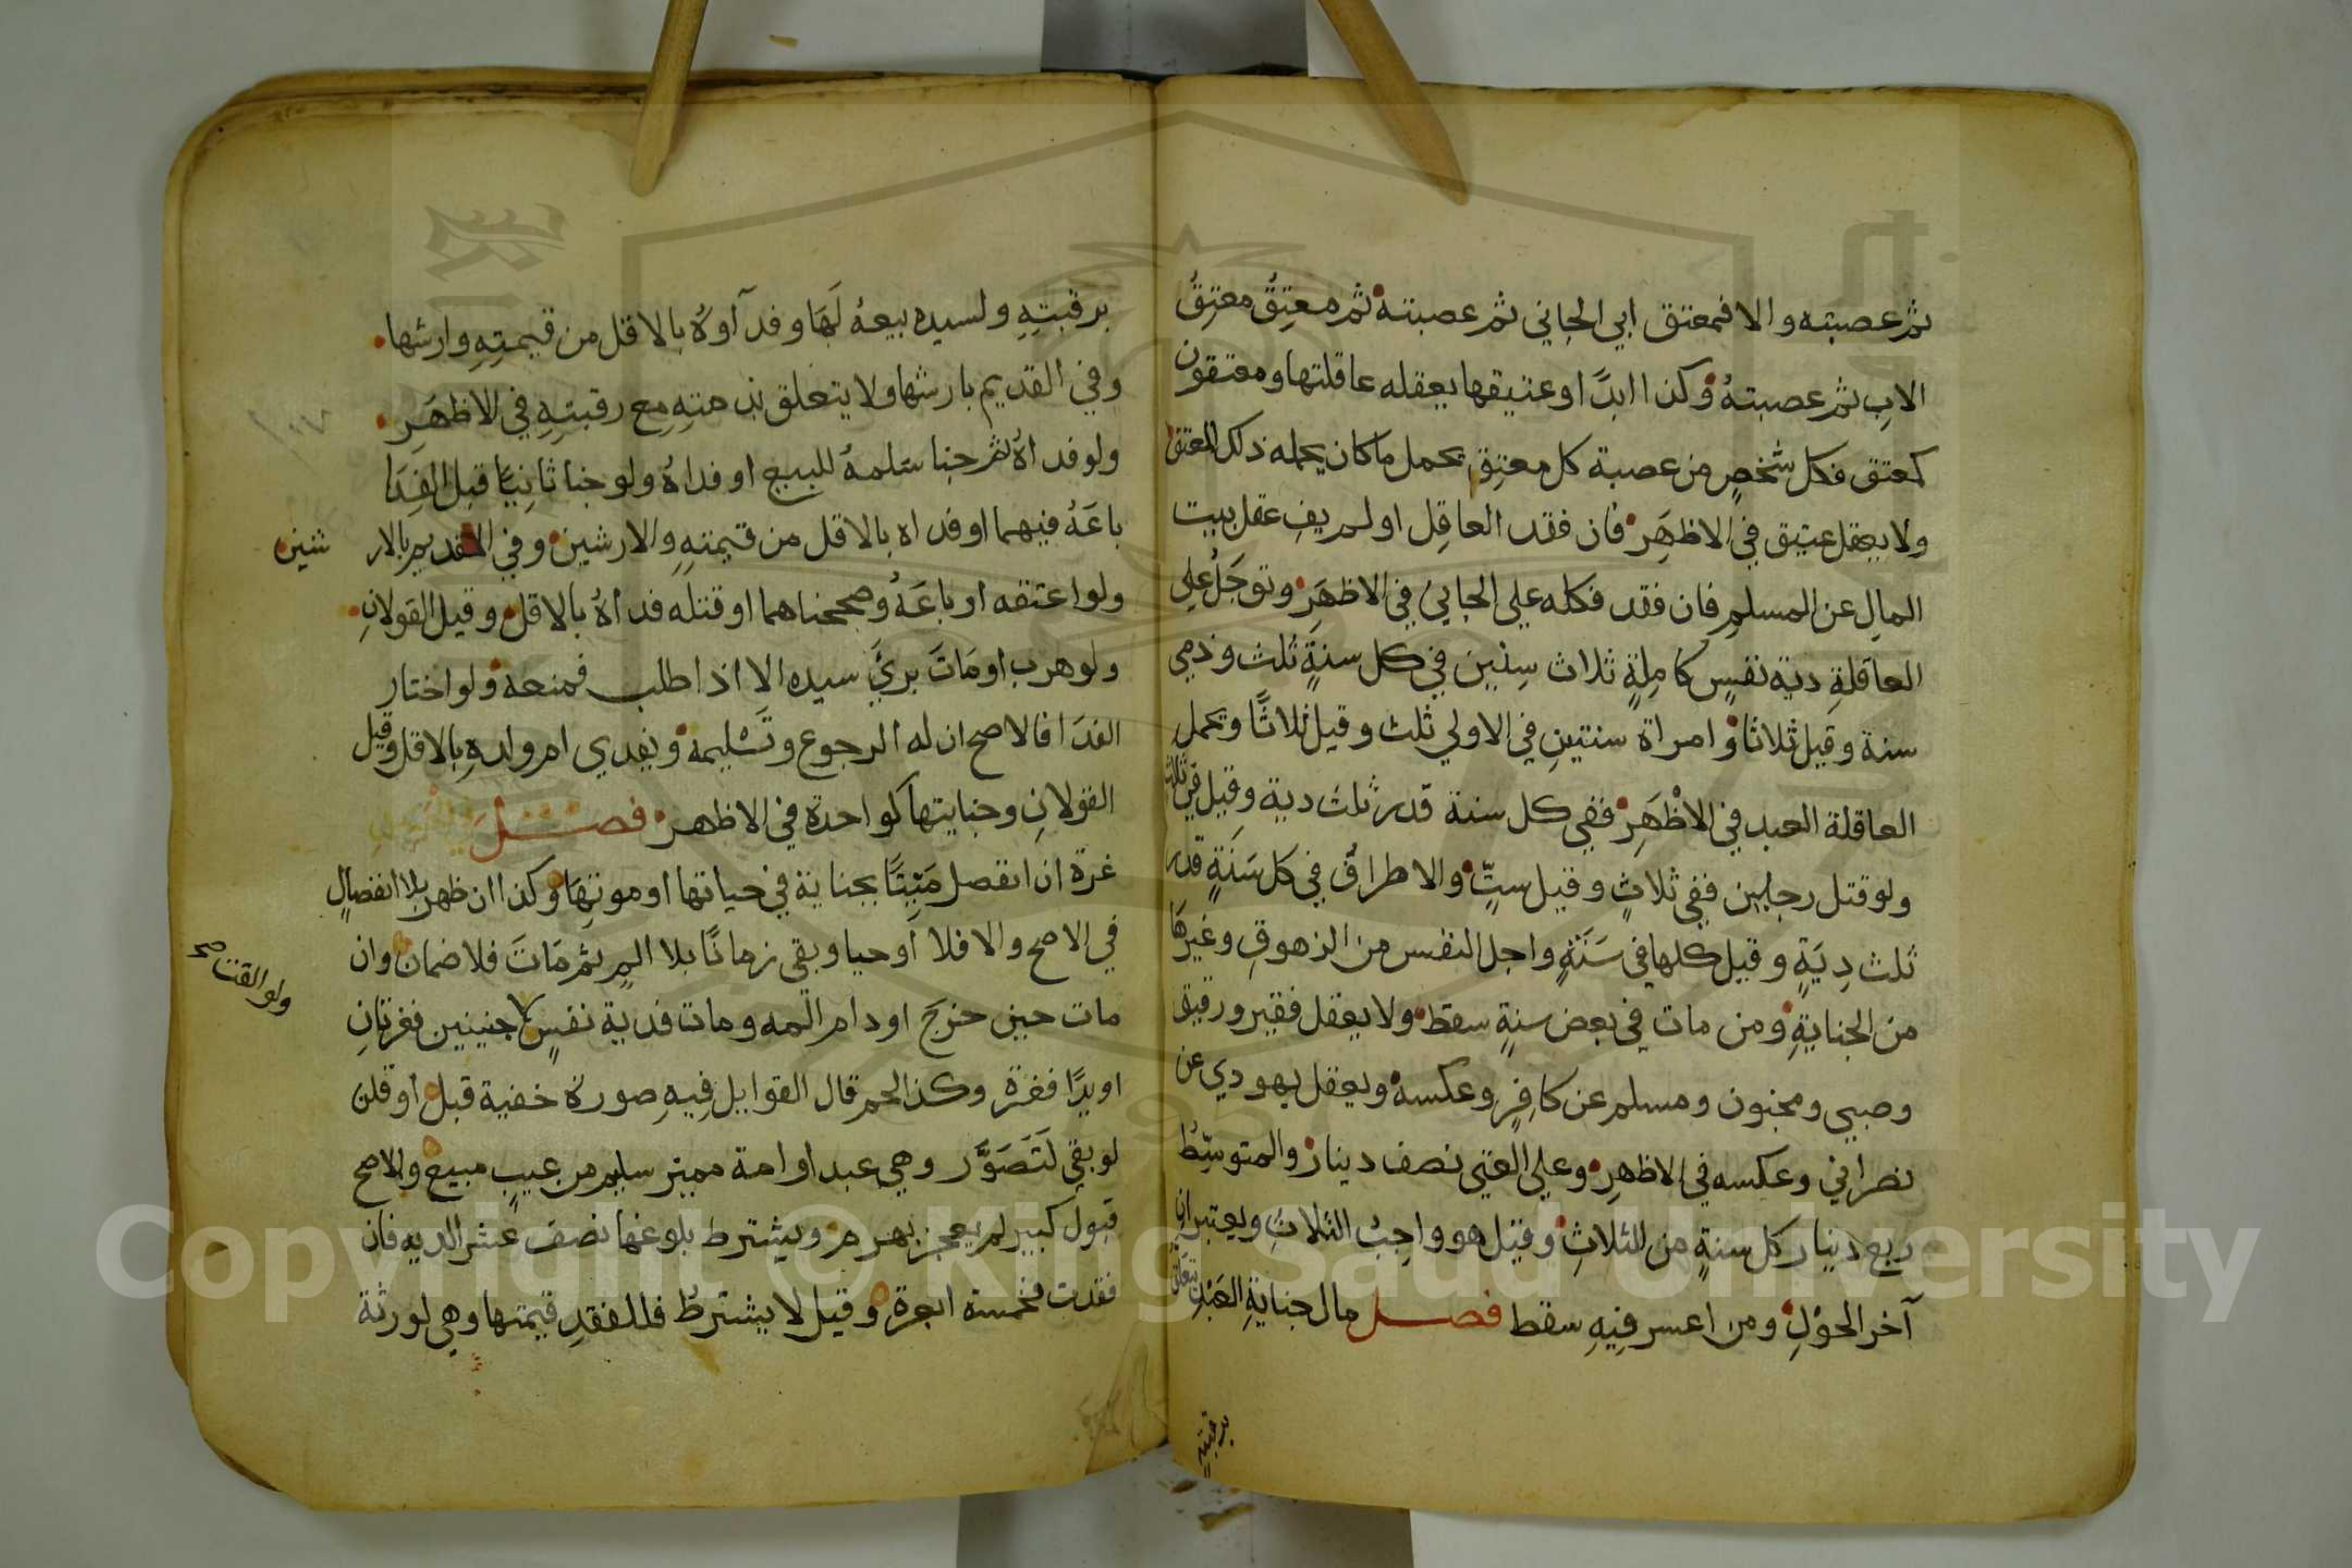 ثم عصبته والا فمعتق ابي الجاني ثم عصبته ثم معتِقُ معتِقُ
الابِ ثم عصبتهُ وكذا ابدًا وعتيقها يعقله عاقلتها ومعتقون
كمعتق فكل شخصٍ من عصبة كل معتِقٍ يحمل ماكان يحمله ذلك المعتق
ولا يعقل عتيق في الاظهَرِ فان فقد العاقِل او لم يفِ عقل بيت
المالِ عن المسلمِ فان فقد فكله علي الجاني في الاظهَرِ وتوجَلُ علي
العاقلةِ دية نفسٍ كامِلةٍ ثلاث سِنين في كل سنةٍ ثلث وذمي
سنة وقيل ثلاثا وامراة سنتينِ في الاولي ثلث وقيل ثلاثًا وتحمل
العاقلة العبد في الاظْهَرِ ففي كل سنة قدر ثلث دية وقيل في ثلاث
ولو قتل رجلين ففي ثلاثٍ وقيل ستٍّ والاطرافُ في كل سَنَةٍ قدر
ثلث دِيَةٍ وقيل كلها في سَنَةٍ واجل النفس من الزهوقِ وغيرهَا
من الجنايةِ ومن مات في بعض سنةٍ سقط ولا يعقل فقير ورقيق
وصبي ومجنون ومسلم عن كافِرٍ وعكسه ويعقل يهودي عن
نصراني وعكسه في الاظهرِ وعلي الغني نصف دينار والمتوسِّطُ
ربع دينار كل سنةٍ من الثلاثِ وقيل هو واجِبُ الثلاثِ ويعتبران
آخر الحوْلِ ومن اعسر فِيهِ سقط فصل مال جنايةِ العَبْدِ يتعَلّق
برقبتِهِ
برقبتِهِ ولسيده بيعهُ لَهَا وفدآوهُ بالاقل من قيمتِهِ وارشها
وفي القديم بارشها ولا يتعلق بذمتِهِ مع رقبتِهِ في الاظهَرِ
ولو فداهُ ثم جنا سَلمهُ للبيع او فداهُ ولو جنا ثانِيًا قبل الفِدَا
باعَهُ فيهما او فداه بالاقل من قيمتهِ والارشين وفي القديم بالار شين
ولو اعتقه او باعَهُ وصححناهما او قتله فداهُ بالاقل وقيل القولانِ
ولو هرب او مَاتَ بريَ سيده الا اذا طلب فمنعه ولو اختار
الفدَا فالاصح ان له الرجوع وتَسْليمه ويفدي ام ولدهِ بالاقل وقيل
القولانِ وجنايتها كواحدة في الاظهر فصل
غرة ان انفصل مَيِّتًا بجناية في حياتها او موتِهَا وكذا ان ظهر بلا انفصالٍ
في الاصح والا فلا او حيا وبقي زمانًا بلا المٍ ثم مَاتَ فلا ضمان وان
مات حين خرج او دام المه ومات فدية نفسٍ جنينين فغرتانِ
ولو القت صح
او يدًا فغرة وكذا لحم قال القوابل فِيهِ صورة خفية قبل او قلن
لو بقي لَتَصَوَّر وهي عبد او امة مميز سليم من عيبٍ مبيع والاصح
قبول كبير لم يعجز بهرم ويشترط بلوغها نصف عشر الديه فان
فقدت فخمسة ابعرة وقيل لا يشترطُ فللفقدِ قيمتها وهي لورثة
Copyright © King Saud University